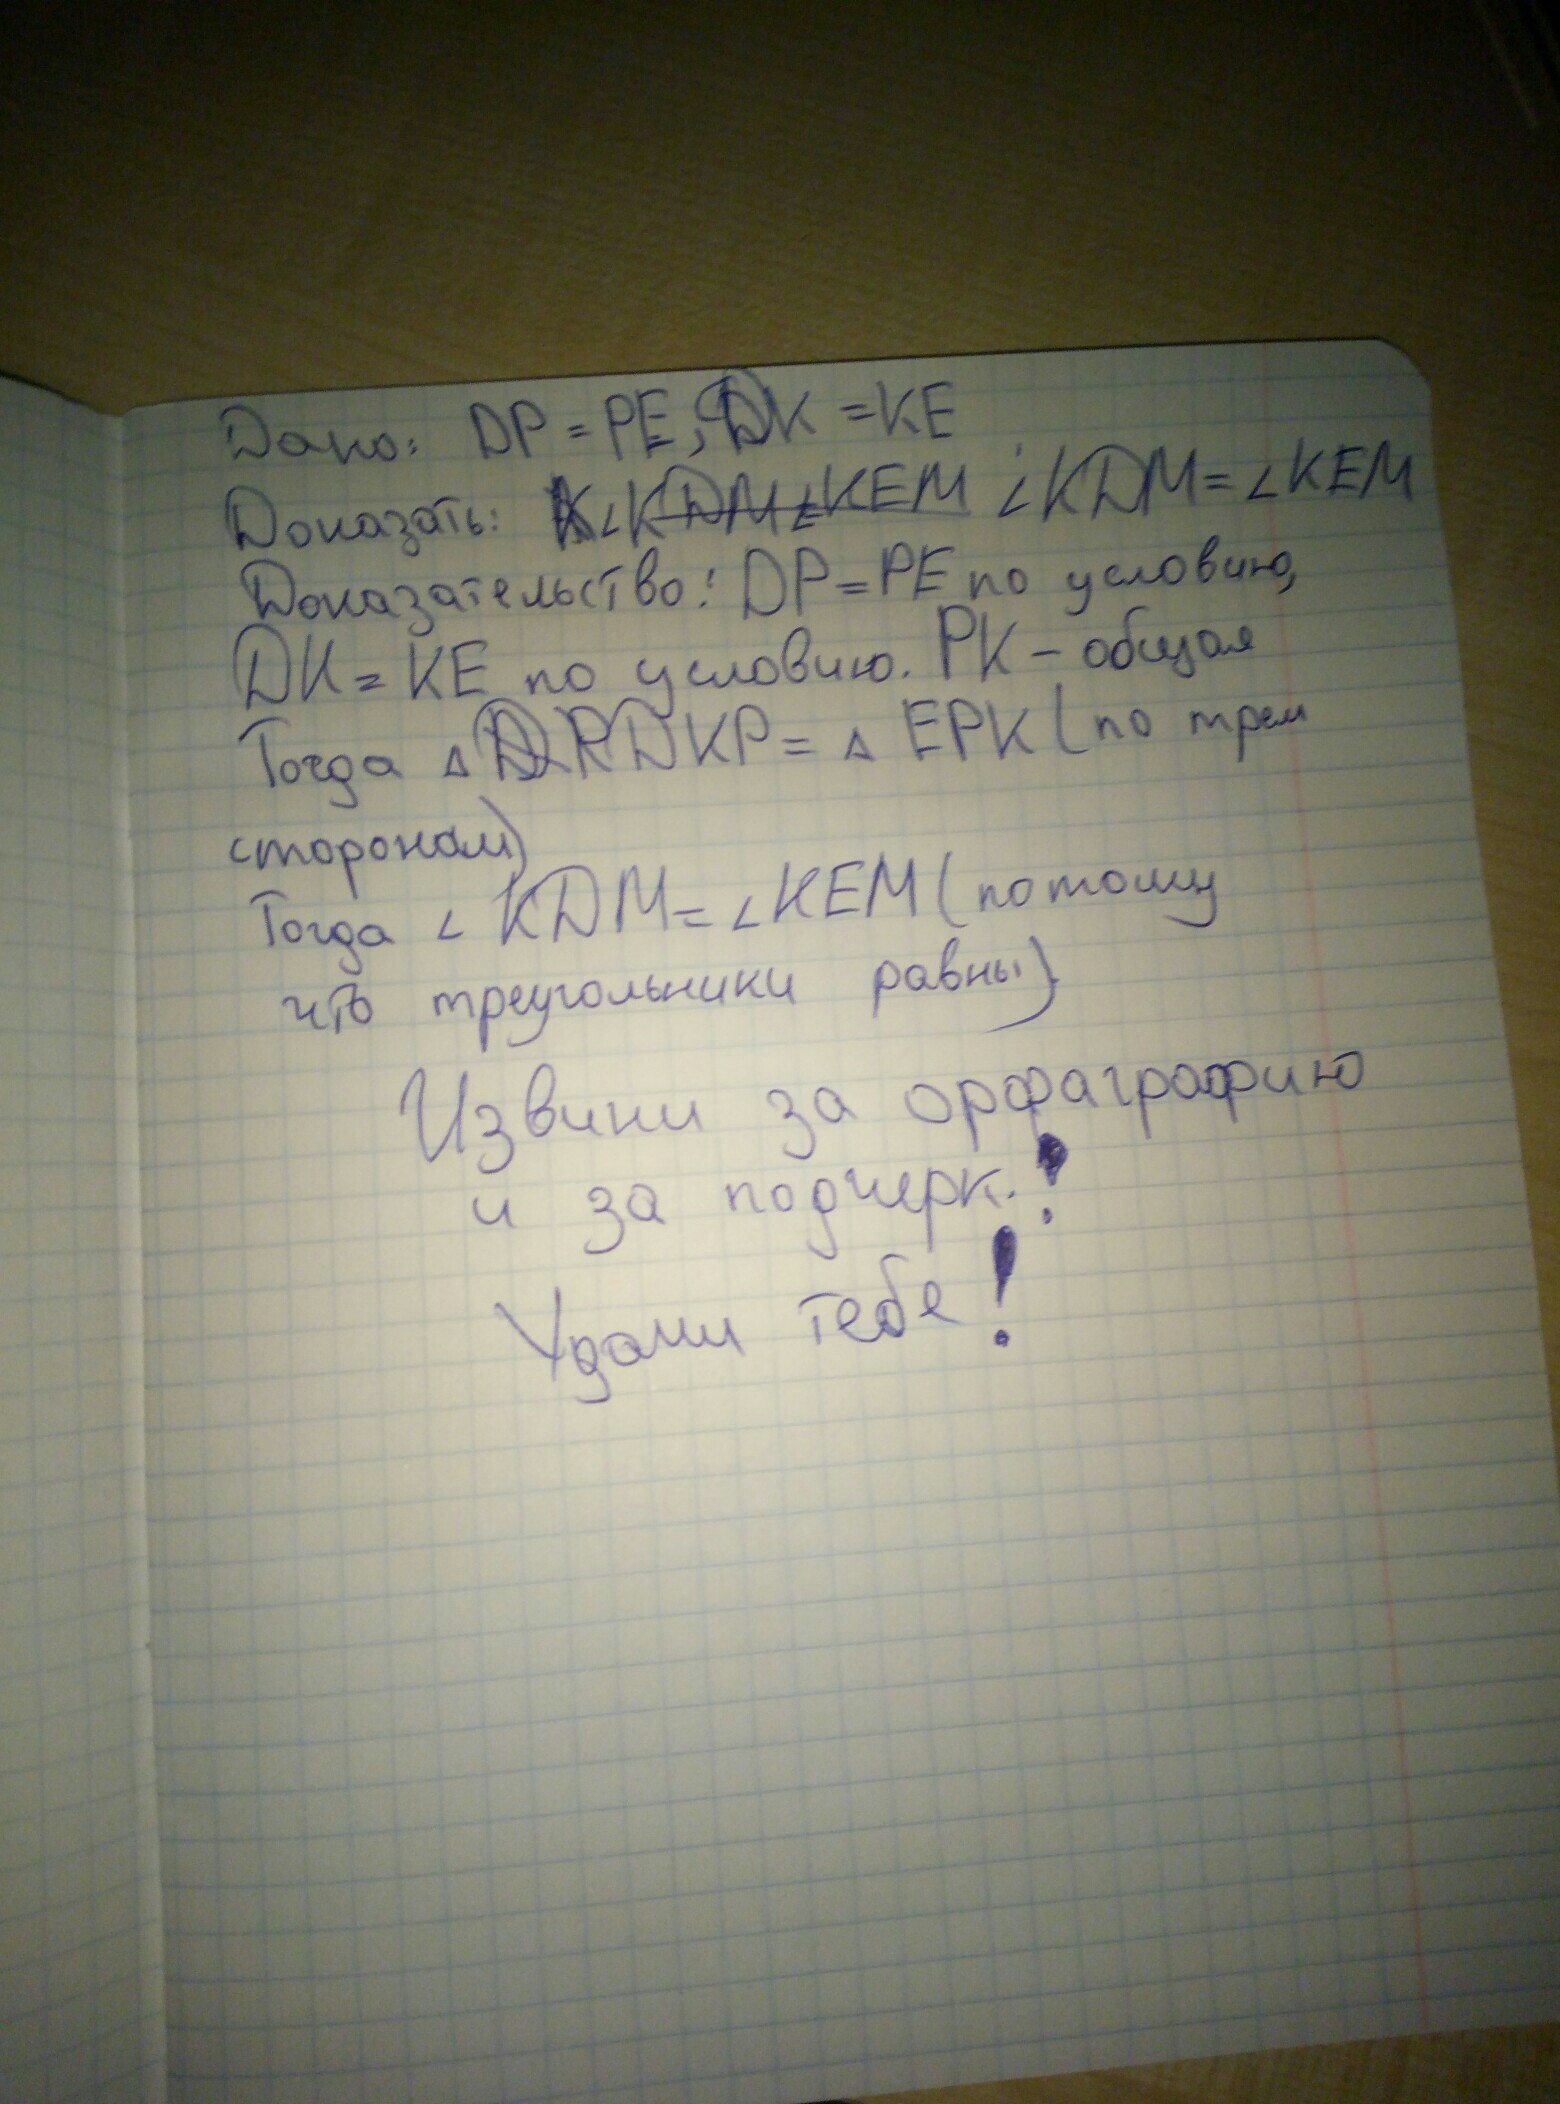 Дано: DP = PE, DK = KE
Доказать: ∠KDM ∠KEM ∠KDM = ∠KEM
Доказательство: DP = PE по условию,
DK = KE по условию. PK – общая
Тогда △ DKP = △ EPK (по трем
сторонам)
Тогда ∠KDM = ∠KEM (потому
что треугольники равны)
Извини за орфаграфию
и за подчерк.!
Удачи тебе!